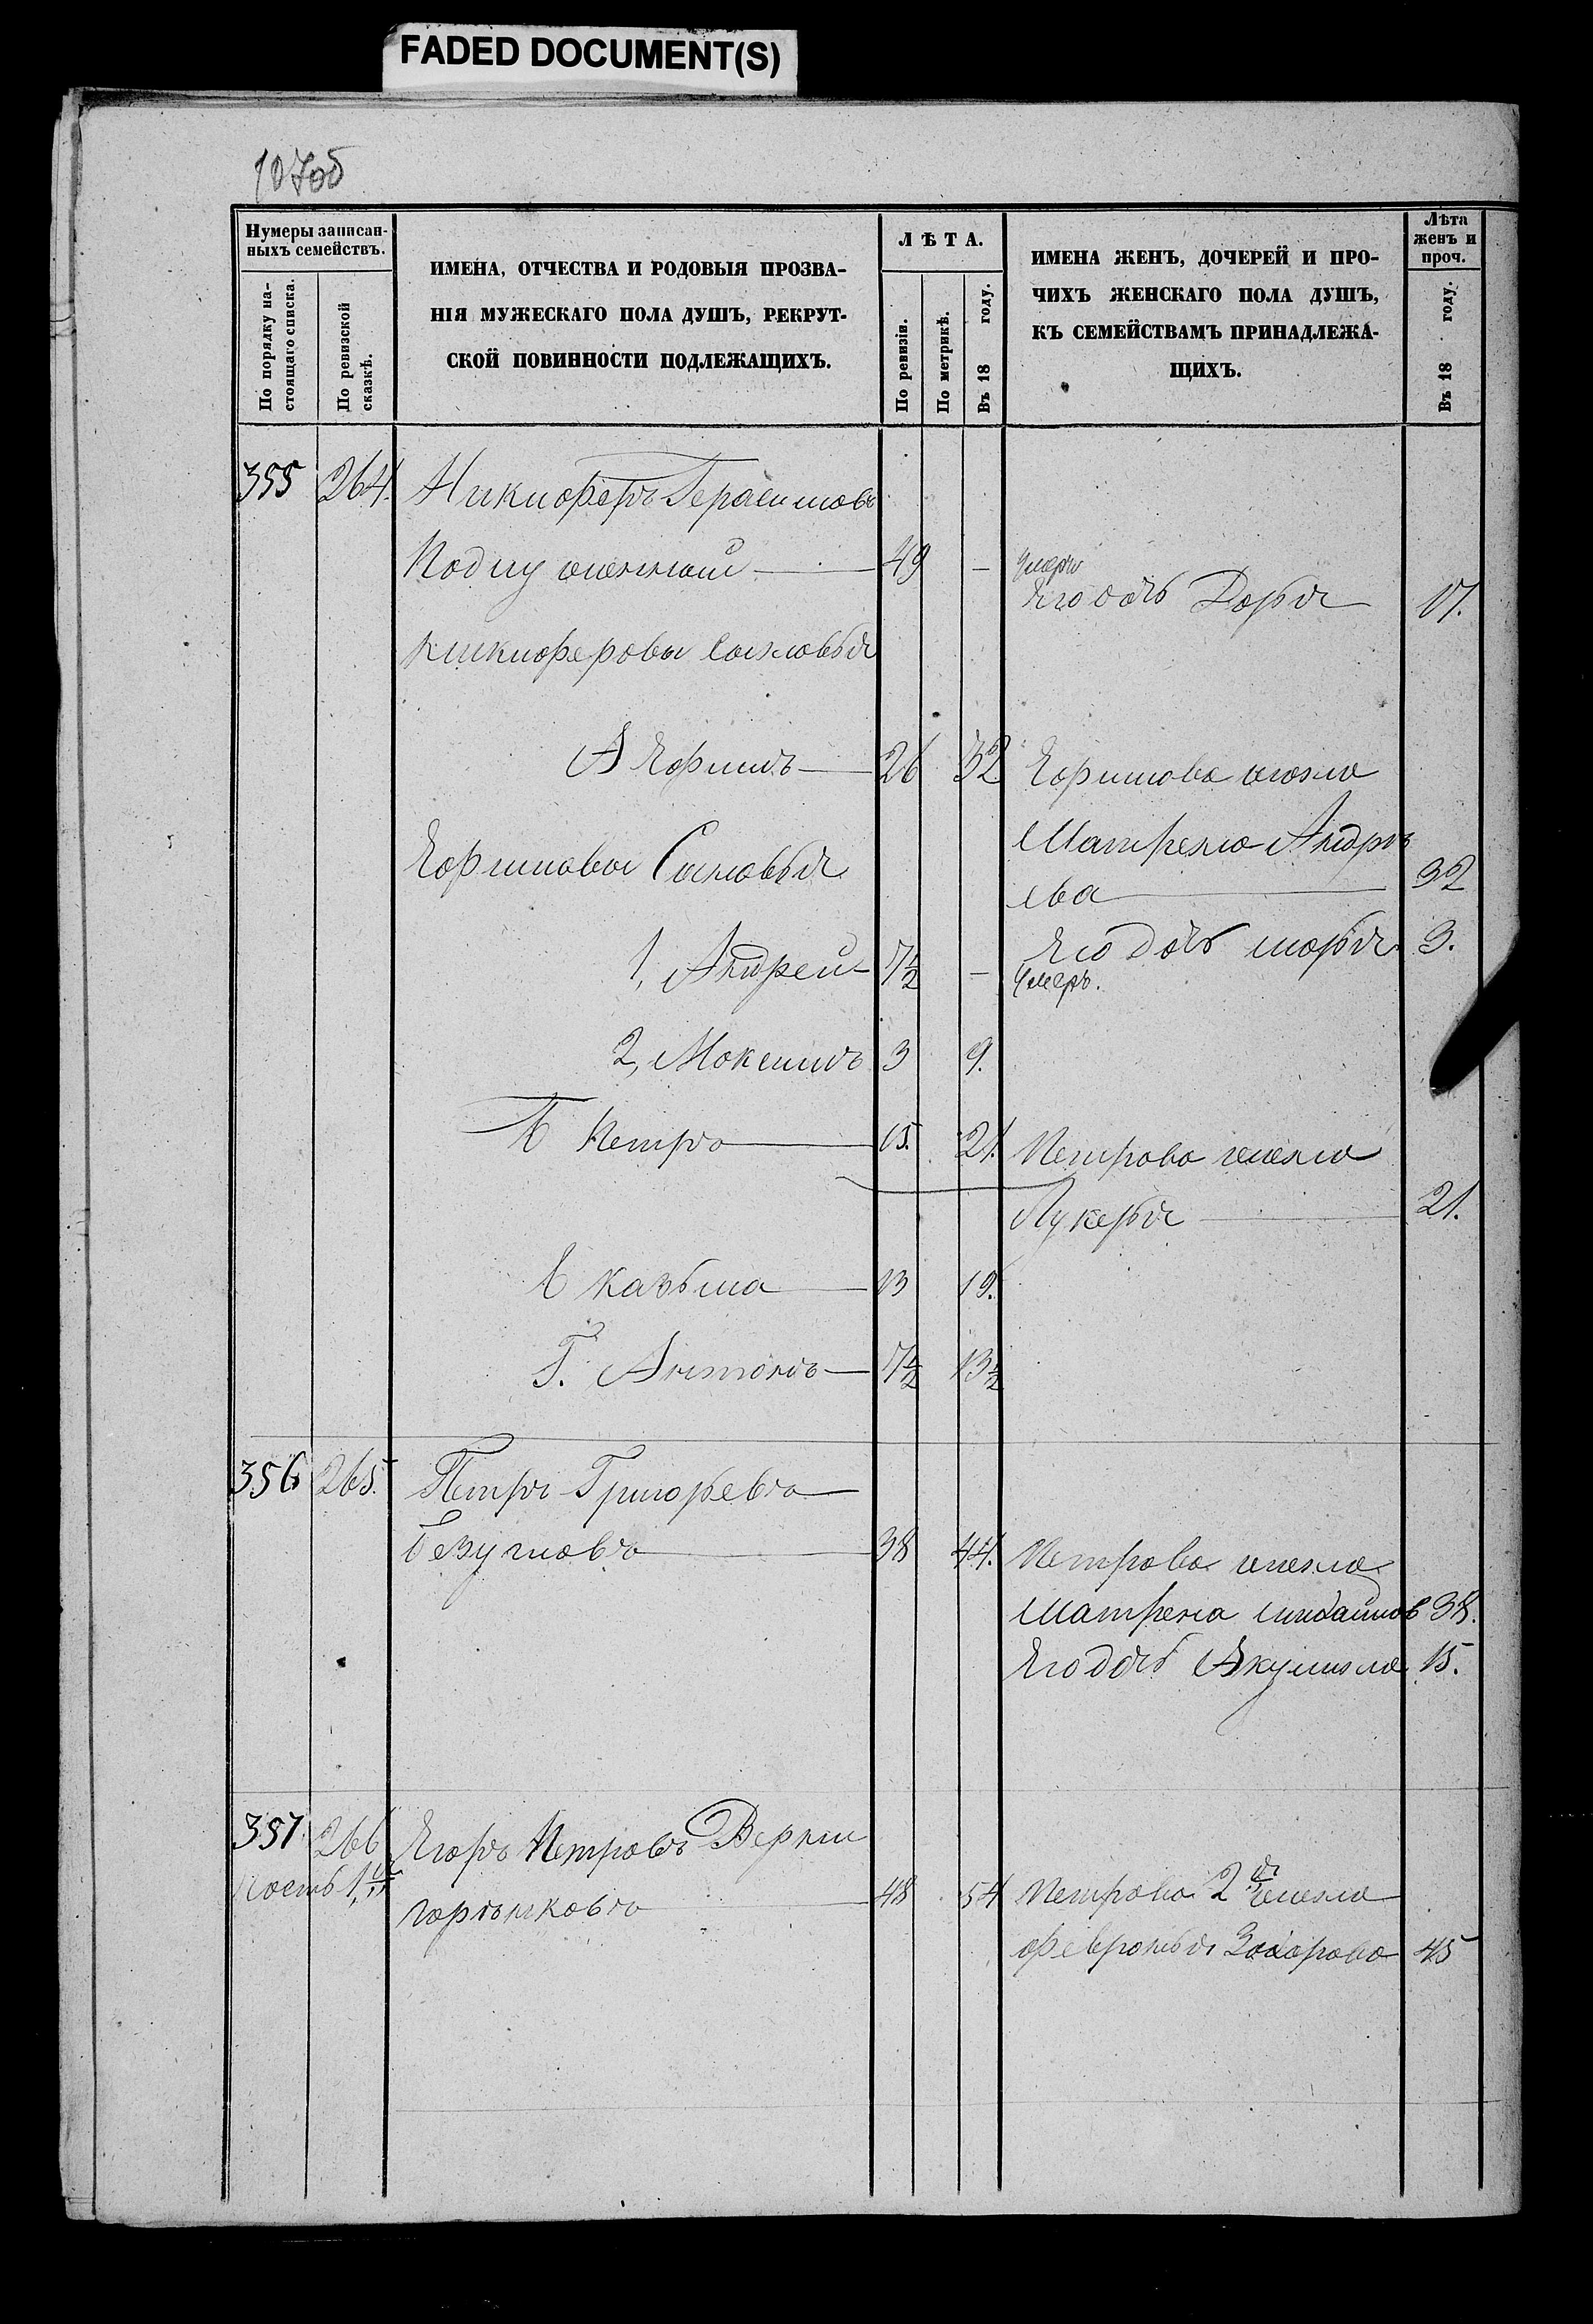 FADED DOCUMENT(S)
107об
Нумеры записан-
ныхъ семействъ.
По порядку на-
стоящаго списка.
По ревизской
сказкѣ.
ИМЕНА, ОТЧЕСТВА И РОДОВЫЯ ПРОЗВА-
НІЯ МУЖЕСКАГО ПОЛА ДУШЪ, РЕКРУТ-
СКОЙ ПОВИННОСТИ ПОДЛЕЖАЩИХЪ.
ЛѢТА.
По ревизіи.
По метрикѣ.
Въ 18 году.
ИМЕНА ЖЕНЪ, ДОЧЕРЕЙ И ПРО-
ЧИХЪ ЖЕНСКАГО ПОЛА ДУШЪ,
КЪ СЕМЕЙСТВАМЪ ПРИНАДЛЕЖА-
ЩИХЪ.
Лѣта
женъ и
проч.
Въ 18 году.
355 264. Никиферъ Герасимовъ
49 — умеръ
Его дочь Дарья 17.
Никиферовы Сыновья
А Ефимъ 26 32 Ефимова жена
Матрена Андрѣ
Ефимовы Сыновья
ева 32
Его дочь Марья 3.
1, Андрей 7½ — Умеръ.
2, Максимъ 3 9.
Б Петръ 15. 21. Петрова жена
Лукерья 21.
В Казьма 13 19.
Г. Антонъ 7½ 13½
356 265. Петръ Григорьевъ
Безугловъ 38 44. Петрова жена
Матрена 38.
Его дочь Акулина 15.
357. 266 Егоръ Петровъ Верни
горшковъ 48 54 Петрова 2я жена
Февронья Захарова 45